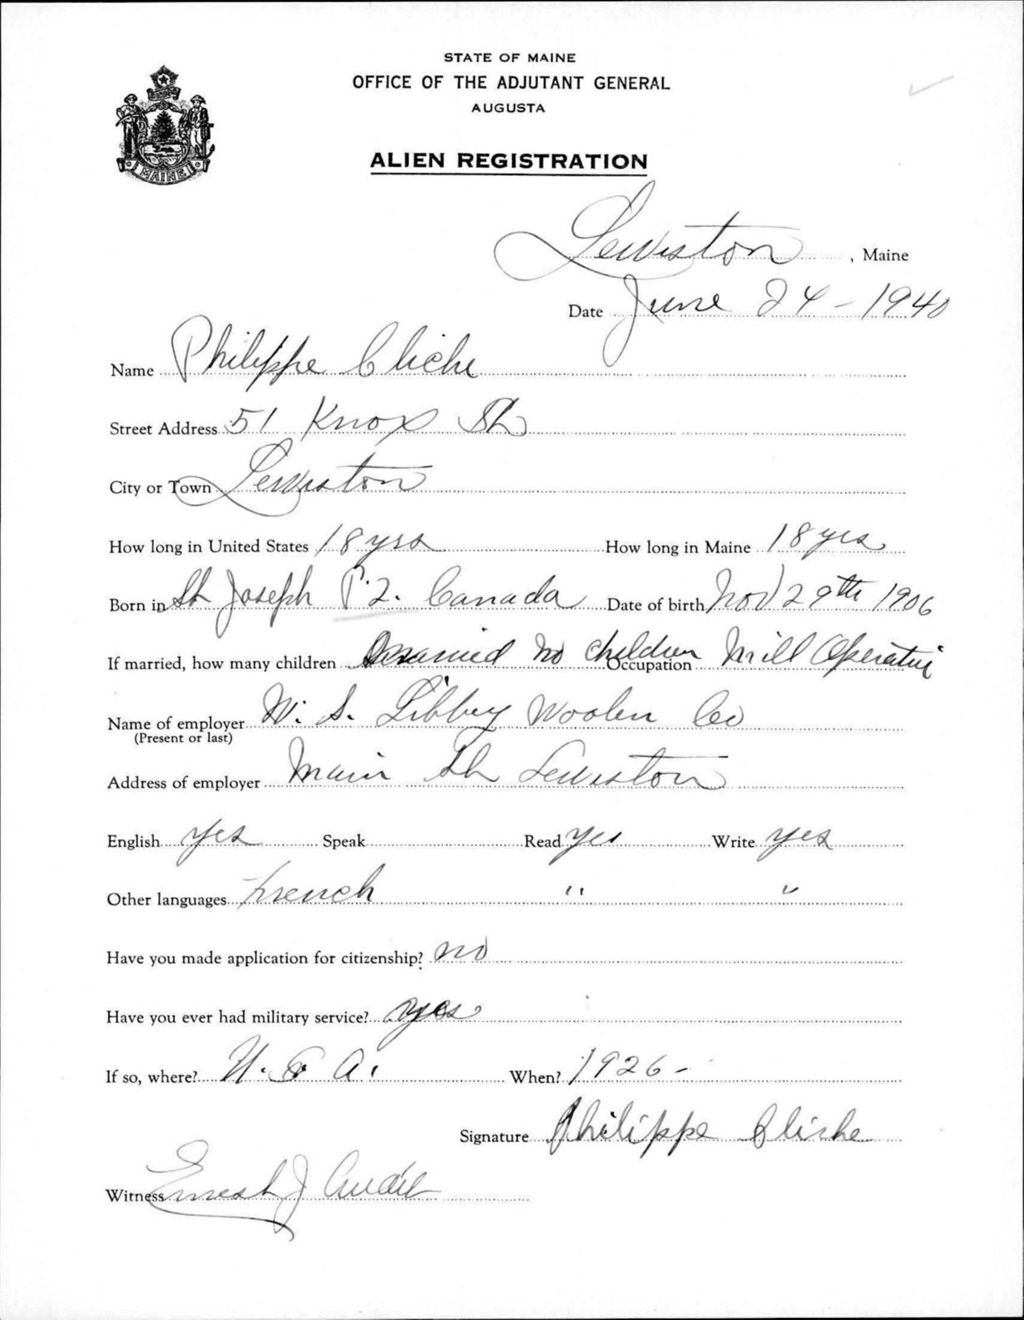 STATE OF MAINE
OFFICE OF THE ADJUTANT GENERAL
AUGUSTA
ALIEN REGISTRATION
MAINE
Lewiston, Maine
Date June 24-1940
Name Philippe Cliche
Street Address 51 Knox St
City or Town Lewiston
How long in United States 18 yrs How long in Maine 18 yrs
Born in St Joseph P.Q. Canada Date of birth Nov 29th 1906
If married, how many children married no children Occupation Mill Operative
Name of employer W. S. Libby Woolen Co
(Present or last)
Address of employer Main St Lewiston
English yes Speak Read yes Write yes
Other languages French " "
Have you made application for citizenship? no
Have you ever had military service? yes
If so, where? U.S.A. When? 1926-
Signature Philippe Cliche
Witness Ernest J